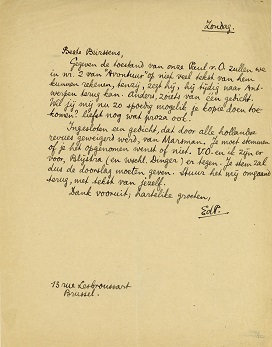 Zondag
Beste Burssens,
Gegeven de toestand van onze Paul v. O. zullen we
in nr. 2 van "Avontuur" op niet veel tekst van hem
kunnen rekenen, tenzij, zegt hij, hij tijdig naar Ant-
werpen terug kan. Anders, zoiets van een gedicht.
Wil jij mij nu zo spoedig mogelik je kopie doen toe-
komen? Liefst nog wat proza ook.
Ingesloten een gedicht, dat door alle hollandse
revues geweigerd werd, van Marsman. Je moet stemmen
of je het opgenomen wenst of niet. V.O. en ik zijn er
voor, Blijstra (en wschl. Dinger) er tegen. Je stem zal
dus de doorslag moeten geven. Stuur het mij omgaand
terug, met tekst van jezelf.
Dank vooruit; hartelike groeten,
EdP.
13 rue Lesbroussart
Brussel.